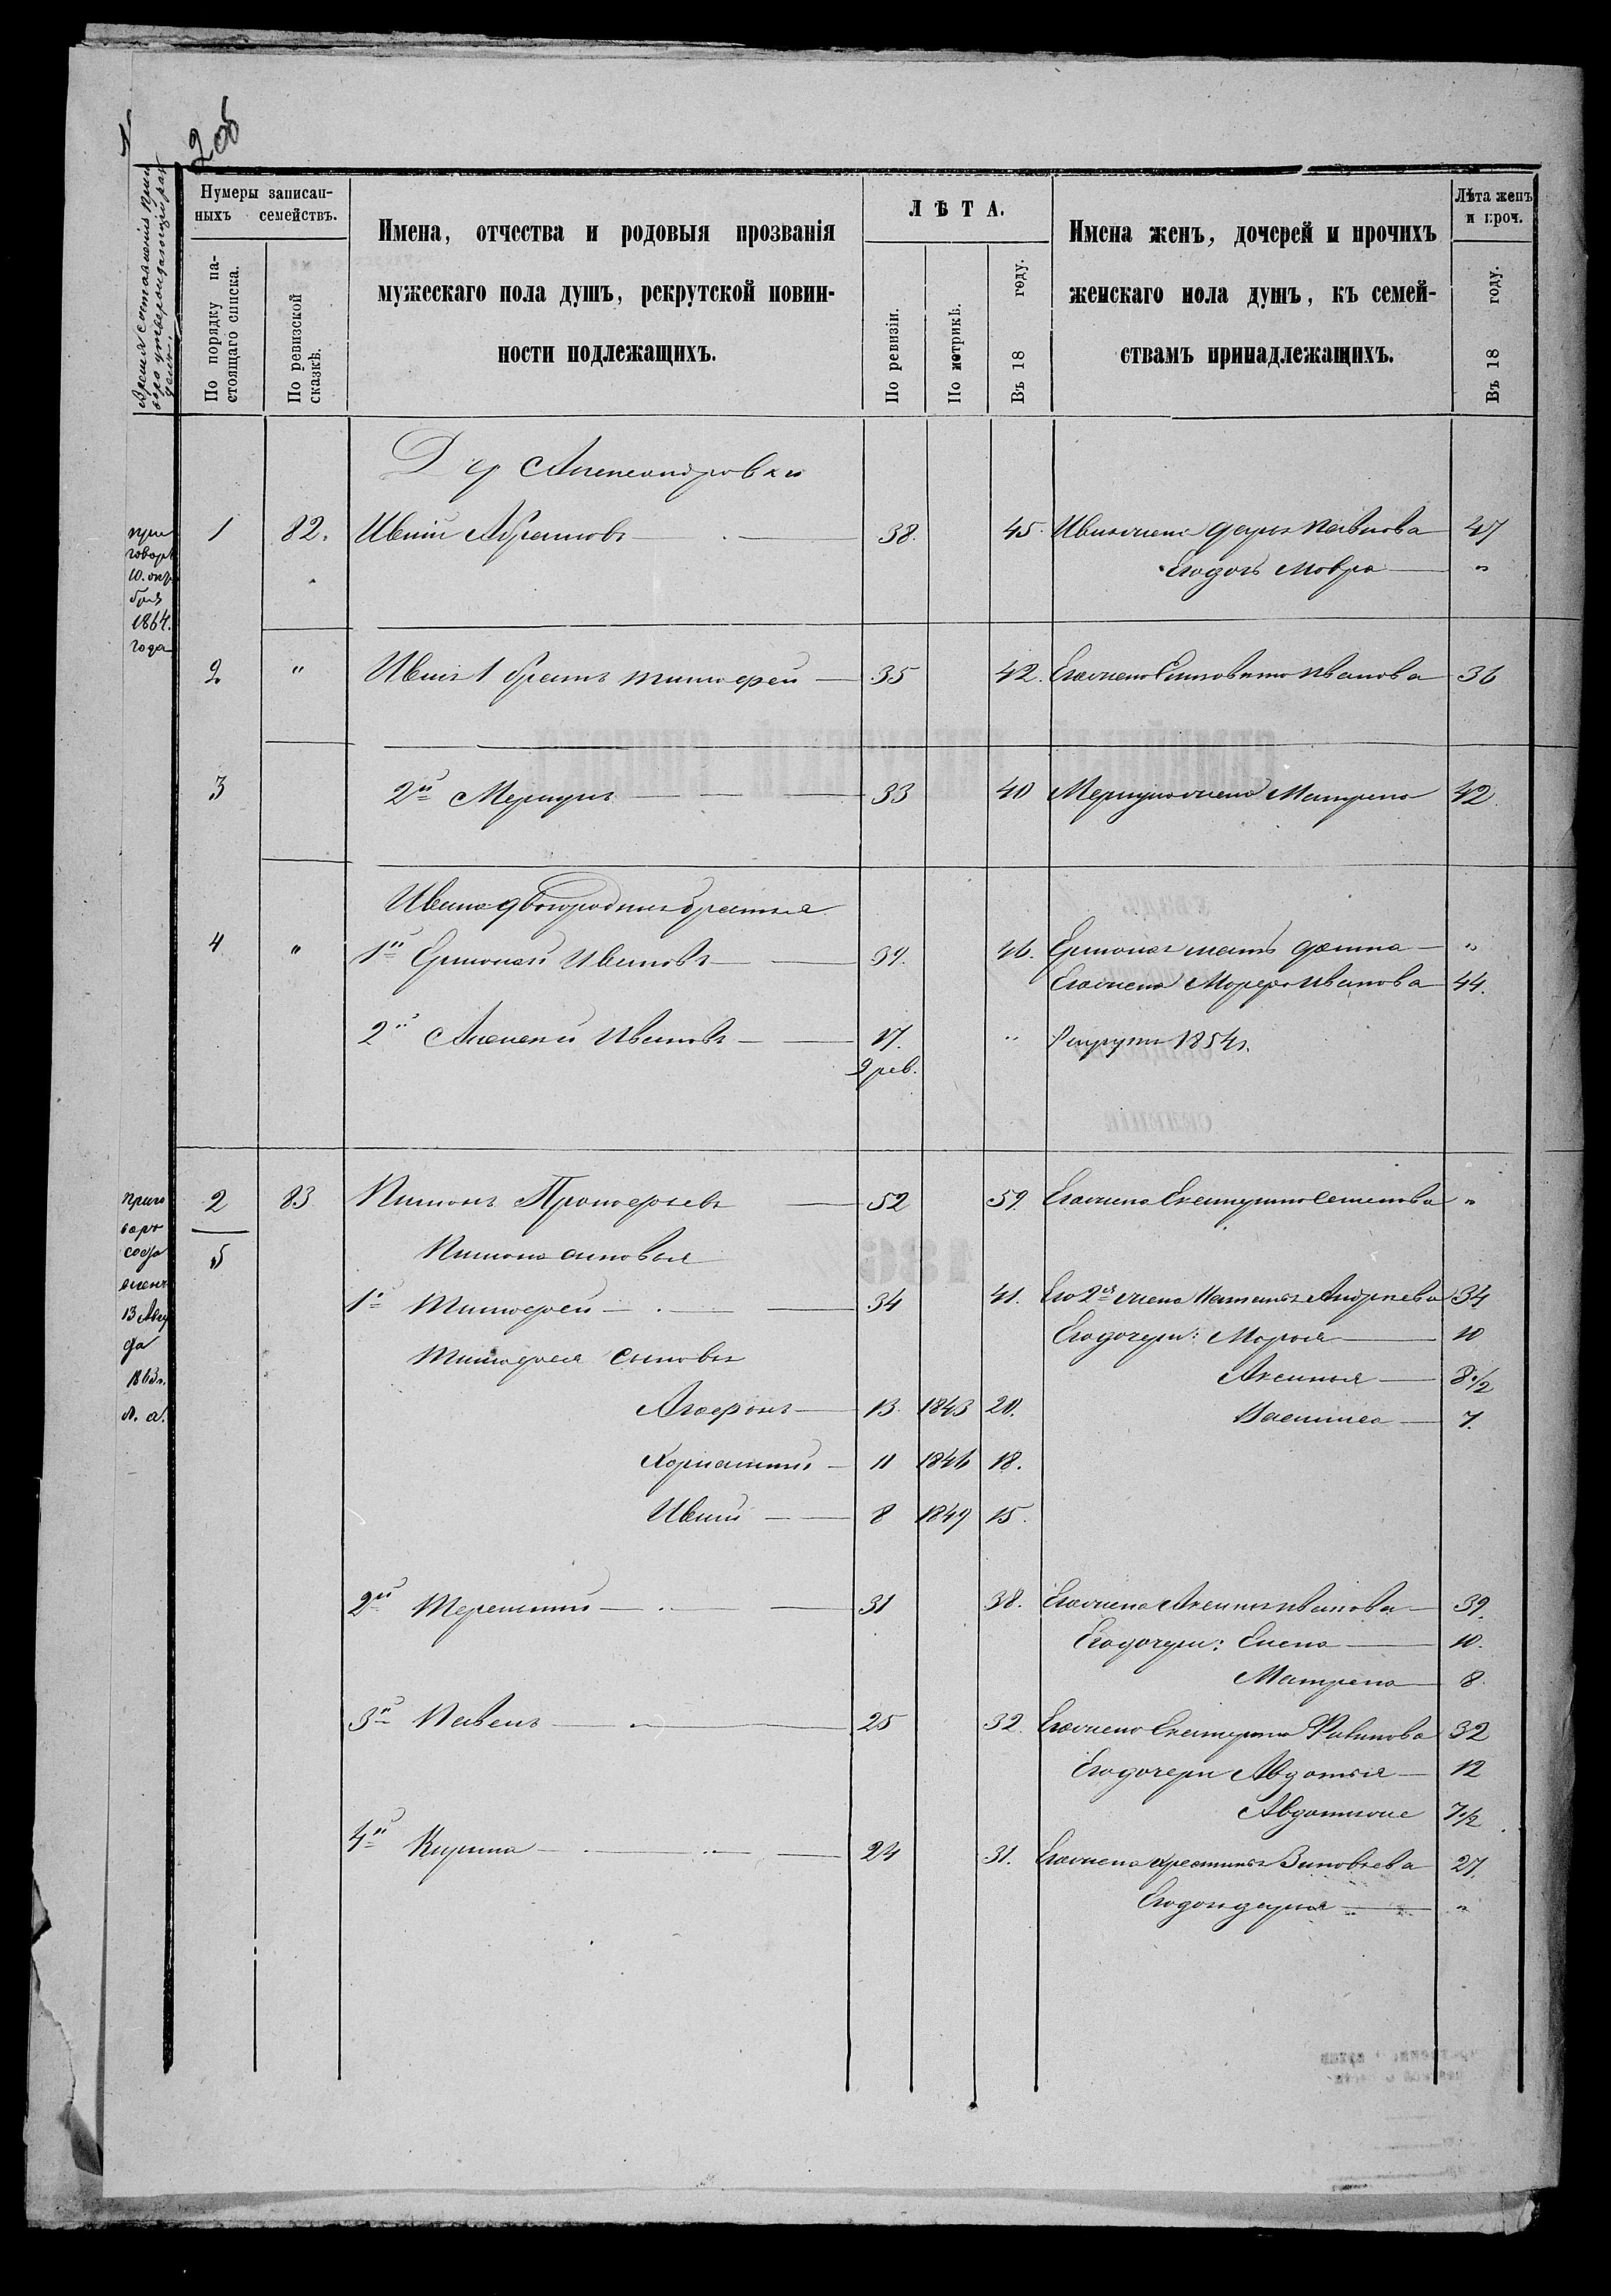 2об
Время составленія приговоро утверждающаго раздела.
Нумеры записан-
ныхъ семействъ.
По порядку на-
стоящаго списка.
По ревизской
сказкѣ.
Имена, отчества и родовыя прозванія
мужескаго пола душъ, рекрутской повин-
ности подлежащихъ.
ЛѢТА.
По ревизіи.
По метрикѣ.
Въ 18 году.
Имена женъ, дочерей и прочихъ
женскаго пола душъ, къ семей-
ствамъ принадлежащихъ.
Лѣта женъ
и проч.
Въ 18 году.
Дер Александровки
при
говоръ
10. окт
бря
1864.
года
1 82. Иванъ Абрамовъ 38. 45. Ивана жена Дарья Павлова 47
Его дочь Мавра "
2. " Ивана 1 братъ Тимофей 35 42. Его жена Иванова 36
3 2й Меркулъ 33 40 Меркула жена Матрена 42
Ивана двоюродные братья
4 " 1й Ермолай Ивановъ 39. 46. Ермолая мать "
Его жена Марфа Иванова 44.
2й Алексей Ивановъ 17. " Рекрутъ 1854г.
9 рев.
Приго
воръ
соста
влен
13 Авгу
ста
1863г.
2 83 Прокофьевъ 52 59 Его жена Екатерина Семенова "
5 сыновья
1й Тимофей 34 41. Его 2я жена Наталья Андреева 34
Его дочери: Марья 10
Тимофея сыновья
Аксинья 8 1/2
Агафонъ 13 1843 20.
Василиса 7.
11 1846 18.
Иванъ 8 1849 15.
2й Терентий 31 38. Его жена Аксинья Иванова 39.
Его дочери: Елена 10.
Матрена 8
3й Павелъ 25 32. Его жена Екатерина 32
Его дочери Авдотья 12
7 1/2
4й Кузьма 24 31. Его жена Зиновьева 27.
Его дочь Дарья "